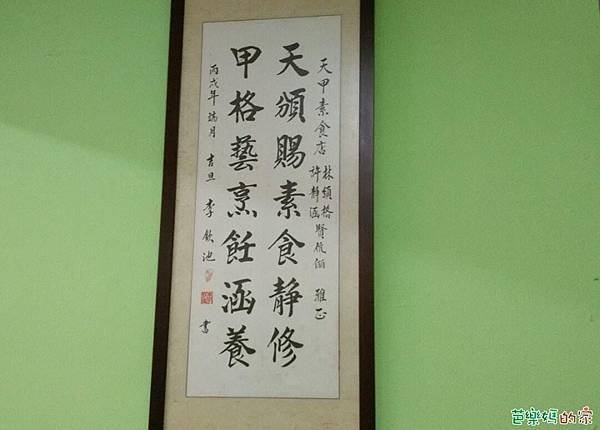 天甲素食店 林頒格 許靜涵 賢伉儷 雅正
天頒賜素食靜修
甲格藝烹飪涵養
丙戌年端月吉旦 李欽池 書
芭樂媽的家